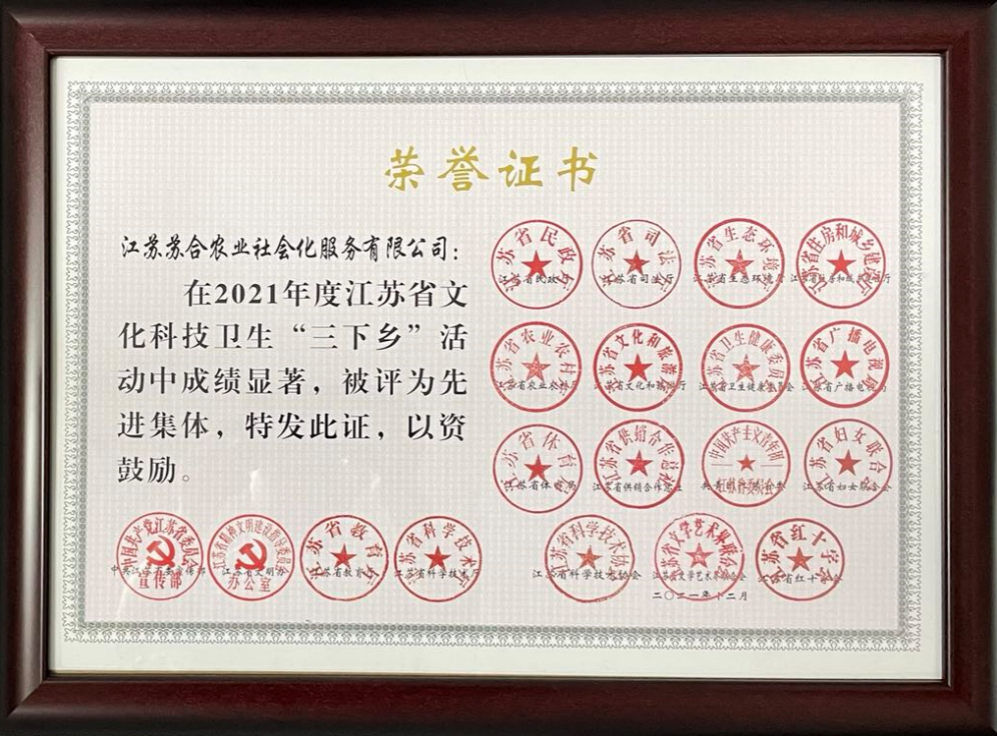 荣誉证书
江苏苏合农业社会化服务有限公司：
在2021年度江苏省文
化科技卫生“三下乡”活
动中成绩显著，被评为先
进集体，特发此证，以资
鼓励。
江苏省民政厅
江苏省司法厅
江苏省生态环境厅
江苏省住房和城乡建设厅
江苏省农业农村厅
江苏省文化和旅游厅
江苏省卫生健康委员会
江苏省广播电视局
江苏省体育局
江苏省供销合作总社
中国共产主义青年团
江苏省委员会
江苏省妇女联合会
中国共产党江苏省委员会
宣传部
江苏省精神文明建设指导委员会
办公室
江苏省教育厅
江苏省科学技术厅
江苏省科学技术协会
江苏省文学艺术界联合会
江苏省红十字会
二〇二一年十二月